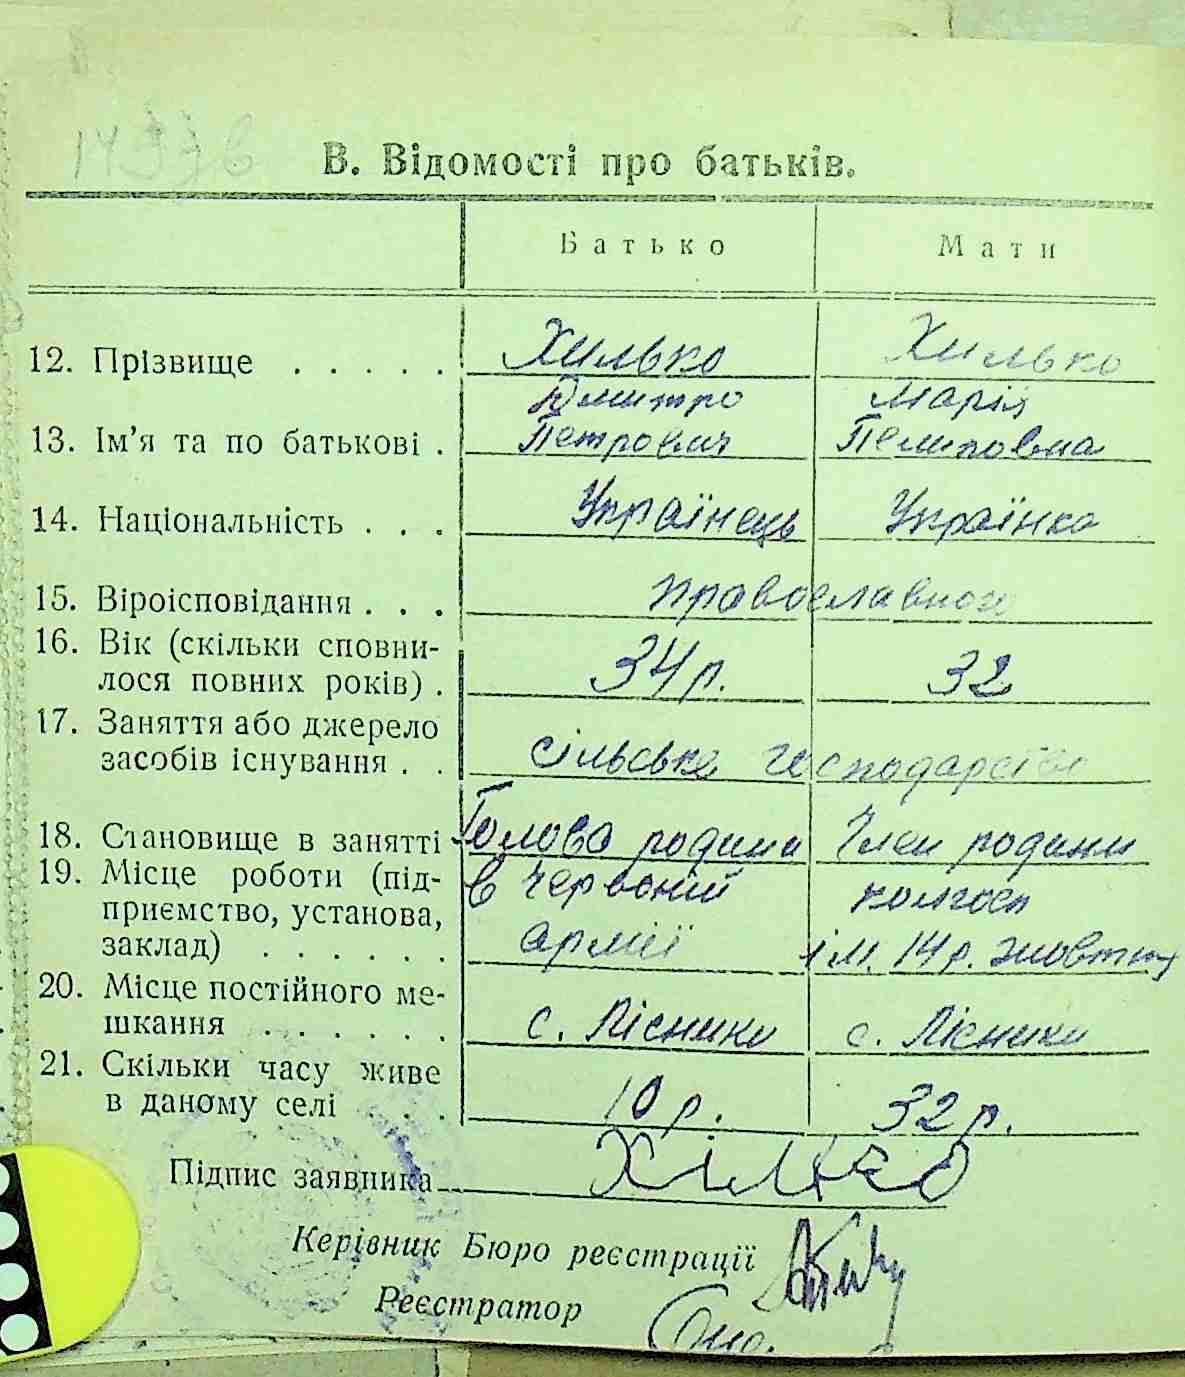 В. Відомості про батьків.
Батько Мати
12. Прізвище . . . . . Хилько Хилько
Дмитро Марія
13. Ім'я та по батькові . Петрович Пелиповна
14. Національність . . . Українець Українка
15. Віроісповідання . . . православного
16. Вік (скільки сповни-
лося повних років) . 34 р. 32
17. Заняття або джерело
засобів існування . . сільське господарство
18. Становище в занятті Голова родини Член родини
19. Місце роботи (під- в Червоній колгосп
приємство, установа,
заклад) . . . . . . армії ім. 14 р. жовтня
20. Місце постійного ме-
шкання . . . . . с. Лісники с. Лісники
21. Скільки часу живе
в даному селі . . . 10 р. 32 р.
Підпис заявника Хілько
Керівник Бюро реєстрації
Реєстратор